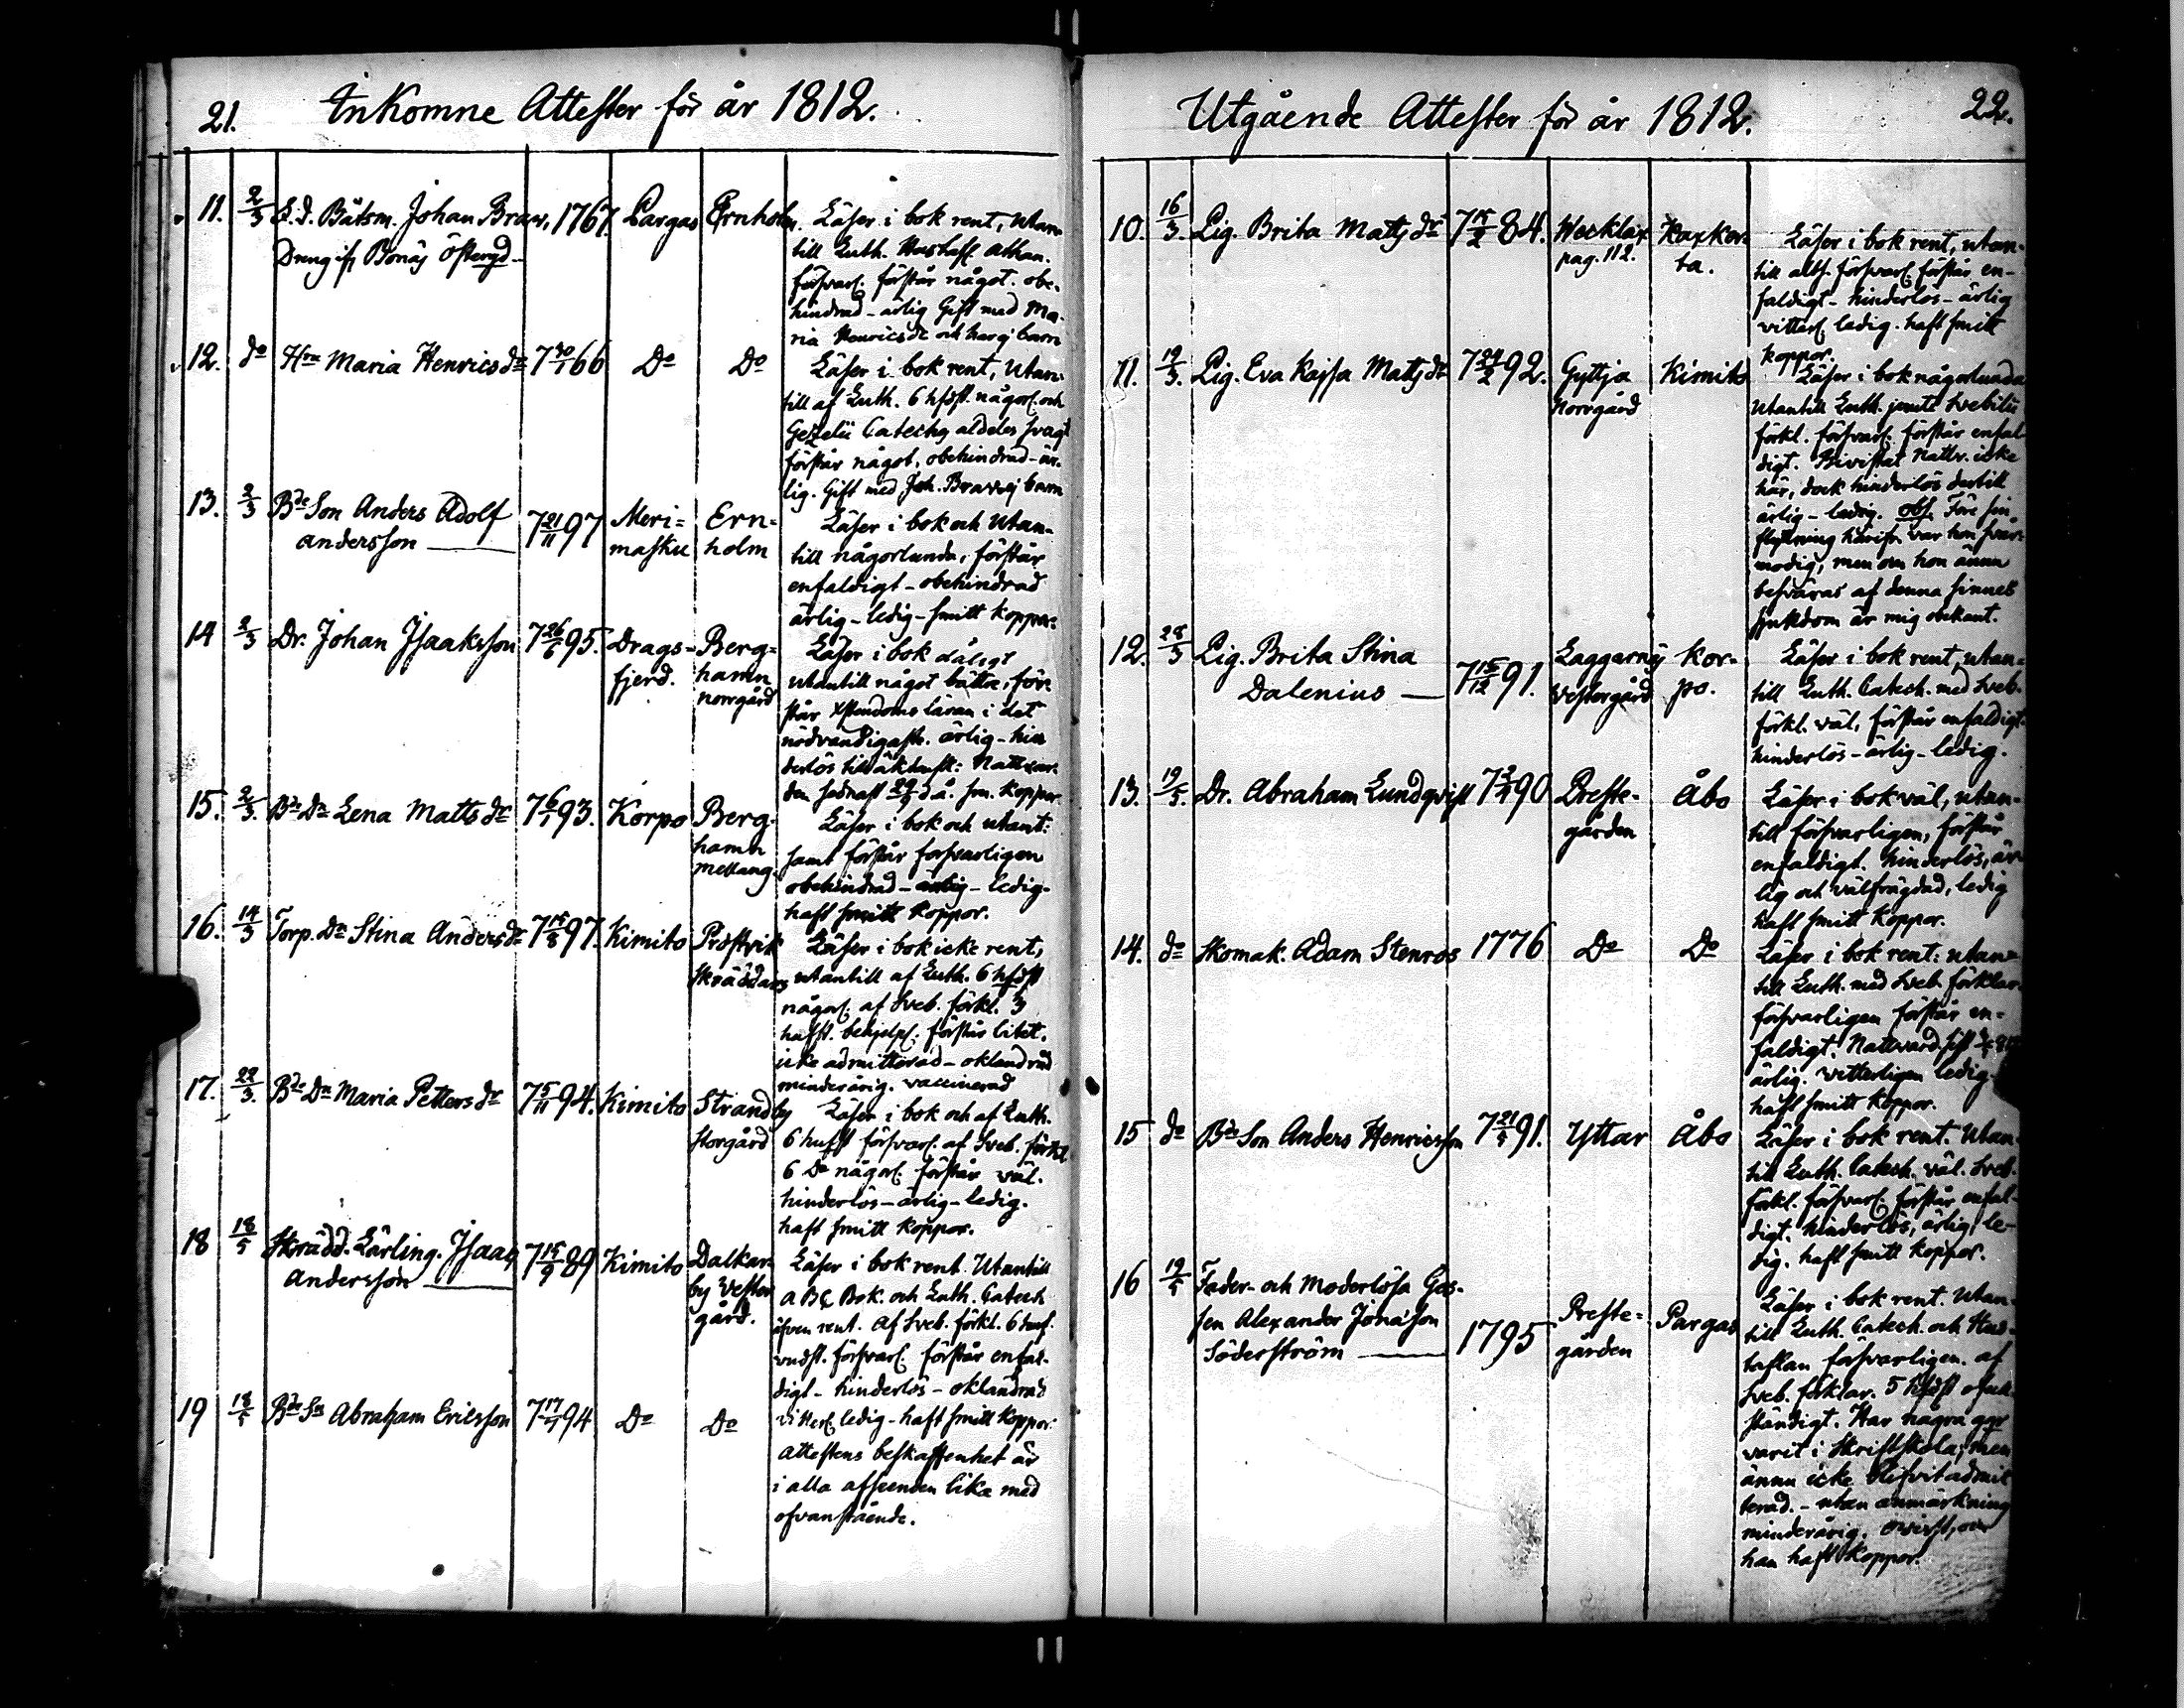 21.
Inkomne Attester för år 1812.
11. 2/3 E.d. Båtsm. Johan Braw, 1767. Pargas Ernholm.
Dreng ifr Bonäs Östergd
Läser i bok rent, utan-
till Luth. Hustafl. Athan.
försvarl. förstår något. obe-
hindrad - ärlig Gift med Ma-
ria Henricsdr och har ej barn
12. do Hru Maria Henricsdr 7 30/1 66 Do Do
Läser i bok rent, Utan-
till af Luth. 6 hfdst. någorl. och
Gezelii Catechs aldeles svagt
förstår något, obehindrad - är-
lig. Gift med Joh. Braw ej barn
13. 2/3 Bde Son Anders Adolf
Andersson 7 21/11 97 Meri-
masku Ern-
holm
Läser i bok och Utan-
till någorlunda, förstår
enfaldigt - obehindrad
ärlig - ledig - smitt koppor.
14 2/3 Dr. Johan Isaaksson 7 26/6 95. Drags-
fjerd. Berg-
hamn
norrgård
Läser i bok dåligt
utantill något bättre, för-
står Xstendoms läran i det
nödvändigaste. ärlig - hin
derlös till äktensk: Nattvar-
den sednast d.å. sm. koppor
15. 2/3. Bde Dr Lena Mattsdr 7 6/1 93. Korpo Berg-
hamn
mellang.
Läser i bok och utant:
samt förstår försvarligen
obehindrad - ärlig - ledig -
haft smitt koppor.
16. 14/3 Torp. Dr Stina Andersdr 7 15/8 97. Kimito Prostvik
Skräddars
Läser i bok icke rent,
utantill af Luth. 6 hfdst
någorl. af Sveb. förkl. 3
hufst. behjelpl. förstår litet.
icke admitterad - oklandrad
minderårig. vaccinerad
17. 22/3. Bde Dr Maria Pettersdr 7 5/11 94. Kimito Strandby
Storgård
Läser i bok och af Luth.
6 hufst försvarl. af Sveb. förkl.
6 Do någorl. förstår väl.
hinderlös - ärlig - ledig.
haft smitt koppor.
18 18/5 Skrädd. Lärling. Isaac
Andersson 7 15/9 89 Kimito Dalkar-
by Vester
gård.
Läser i bok rent. Utantill
A B C Bok. och Luth. Catech
äfven rent. Af Sveb. förkl. 6 huf-
vudst. försvarl. förstår enfal-
digt - hinderlös - oklandrad
vitterl. ledig - haft smitt koppor.
19 18/5 Bde Sn Abraham Ericsson 7 17/7 94 Do Do
Attestens beskaffenhet är
i alla afseenden lika med
ofvanstående.
Utgående Attester för år 1812.
22.
10. 16/3. Pig. Brita Mattsdr 7 15/2 84. Wecklax
pag. 112. Kaxkor-
ta.
Läser i bok rent, utan-
till allt försvarl. förstår en-
faldigt - hinderlös - ärlig
vitterl. ledig. haft smitt
koppor.
11. 19/3. Pig. Eva Kajsa Mattsdr 7 24/2 92. Gyttja
Norrgård Kimito
Läser i bok någorlunda
Utantill Luth. jemte Svebilii
förkl. försvarl. förstår enfal-
digt. Bevistat Nattv. icke
här, dock hinderlös dertill
ärlig - ledig. obs. Före sin
flyttning härifr. var hon svår-
modig, men om hon ännu
besväras af denna sinnes
sjukdom är mig obekant.
12. 28/3 Pig. Brita Stina
Dalenius 7 15/12 91. Laggarnäs
Vestergård Kor-
po.
Läser i bok rent, utan-
till Luth. Catech. med Sveb.
förkl. väl, förstår enfaldigt.
hinderlös - ärlig - ledig.
13. 19/5. Dr. Abraham Lundqvist 7 3/7 90 Preste-
gården Åbo
Läser i bok väl, utan-
till försvarligen, förstår
enfaldigt. hinderlös, är-
lig och välfrägdad, ledig
haft smitt koppor.
14. do Skomak. Adam Stenros 1776 Do Do
Läser i bok rent: utan-
till Luth. med Sveb. förklar.
försvarligen förstår en-
faldigt. Nattvard. sist
ärlig. vitterligen ledig.
haft smitt koppor.
15 do Bde Son Anders Henricsson 7 21/5 91. Yttar Åbo
Läser i bok rent. Utan-
till Luth. Catech. väl. Sveb.
förkl. försvarl. förstår enfal-
digt. hinderlös, ärlig, le-
dig. haft smitt koppor.
16 19/5 Fader- och Moderlösa Gos-
sen Alexander Jonasson
Söderström 1795 Preste-
gården Pargas
Läser i bok rent. Utan-
till Luth. Catech. och Hus-
taflan försvarligen. af
Sveb. förklar. 5 hfdst ofull-
ständigt. Har några ggr
varit i Skriftskola, men
ännu icke blifvit admit
terad. - utan anmärkning
minderårig. ovisst, om
han haft koppor.